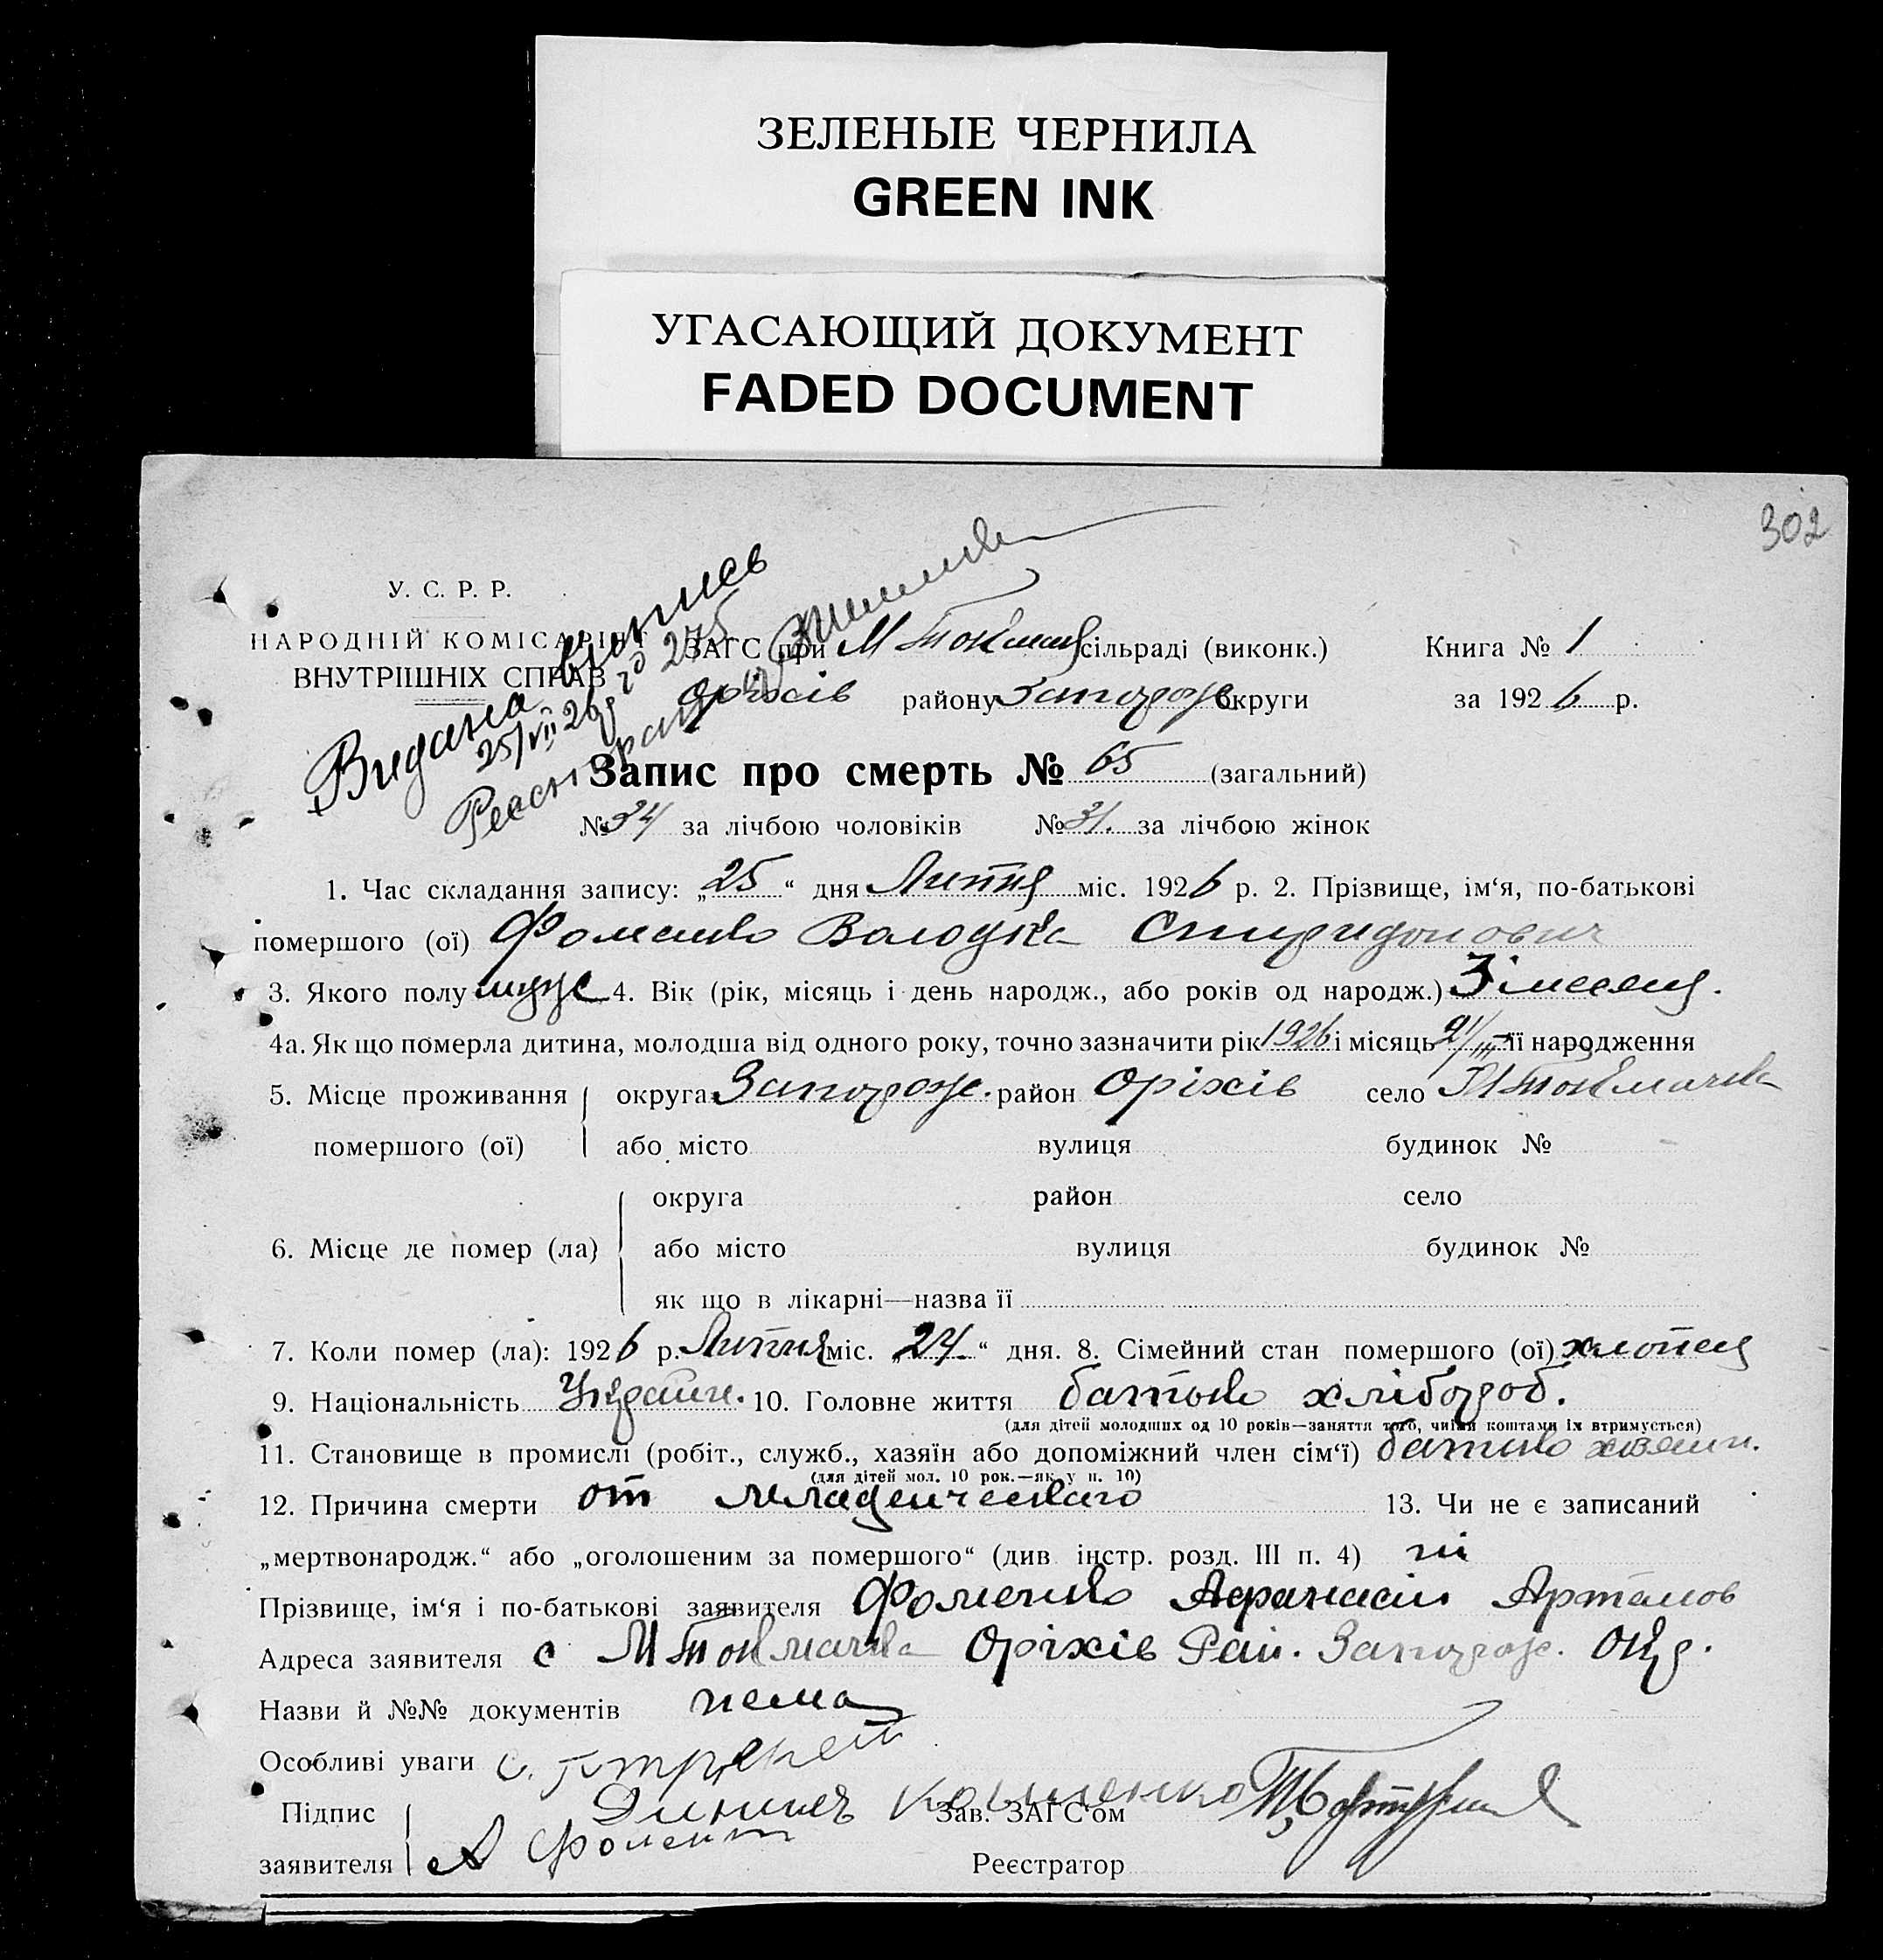 ЗЕЛЕНЫЕ ЧЕРНИЛА
GREEN INK
УГАСАЮЩИЙ ДОКУМЕНТ
FADED DOCUMENT
302
У. С. Р. Р.
НАРОДНІЙ КОМІСАРІЯТ
ВНУТРІШНІХ СПРАВ
Видана випись
25/VII 26 р. № 275
ЗАГС при М Токмац сільраді (виконк.) Книга № 1
Оріхів району Запорож округи за 1926 р.
Запис про смерть № 65 (загальний)
№ 34 за лічбою чоловіків № 31. за лічбою жінок
1. Час складання запису: „25“ дня Липня міс. 1926 р. 2. Прізвище, ім‘я, по-батькові
помершого (ої) Фоменко Володька Спиридонович
3. Якого полу муж 4. Вік (рік, місяць і день народж., або років од народж.) 3 імесяця.
4а. Як що померла дитина, молодша від одного року, точно зазначити рік 1926 і місяць 21/III її народження
5. Місце проживання округа Запорож. район Оріхів село М Токмачка
помершого (ої) або місто вулиця будинок №
округа район село
6. Місце де помер (ла) або місто вулиця будинок №
як що в лікарні—назва її
7. Коли помер (ла): 1926 р. Липня міс. „24“ дня. 8. Сімейний стан помершого (ої) хлопець
9. Національність Україн. 10. Головне життя батько хлібороб.
(для дітей молодших од 10 років—заняття того, чиїми коштами їх втримується)
11. Становище в промислі (робіт., служб., хазяїн або допоміжний член сім‘ї) батько хозяин.
(для дітей мол. 10 рок.—як у п. 10)
12. Причина смерти от младенческаго 13. Чи не є записаний
„мертвонародж.“ або „оголошеним за помершого“ (див. інстр. розд. III п. 4) ні
Прізвище, ім‘я і по-батькові заявителя Фоменко Афанасій Артемов
Адреса заявителя с М Токмачка Оріхів Рай. Запорож. Окр.
Назви й №№ документів нема
Особливі уваги
Підпис Зав. ЗАГС‘ом
заявителя А Фоменк Реєстратор